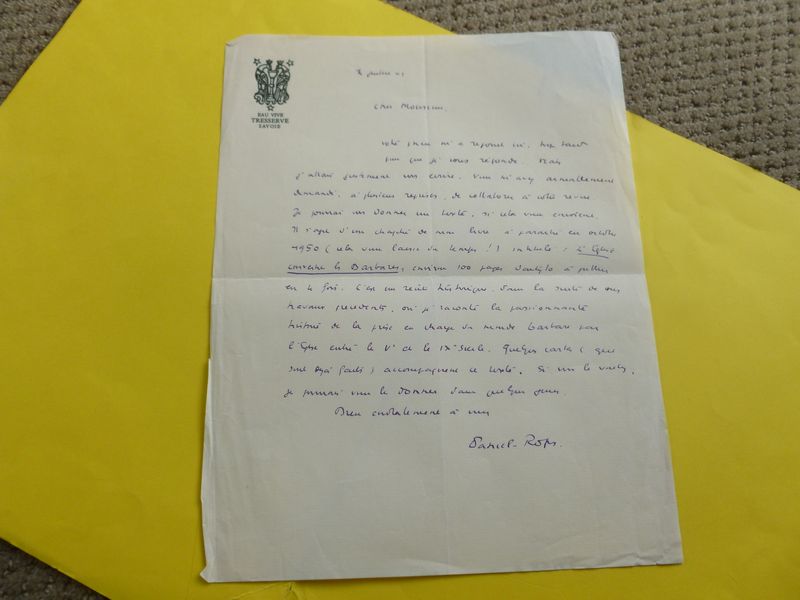 EAU VIVE
TRESSERVE
SAVOIE
Juillet
Cher Monsieur,
votre m'a rejoint ici, trop tard
pour que je vous réponde. Mais
j'allais justement vous écrire. Vous m'avez aimablement
demandé, à plusieurs reprises, de collaborer à votre revue.
Je pourrai vous donner un texte, si cela vous convient.
Il s'agit d'un chapitre de mon livre à paraître en octobre
1950 (cela vous laisse du temps!) intitulé : L'Eglise
convertit les Barbares, environ 100 pages dactylo à publier
en 4 fois. C'est un récit historique, dans la suite de mes
travaux précédents, où je raconte la passionnante
histoire de la prise en charge du monde barbare par
l'Eglise entre le Ve et le IXe siècle. Quelques cartes (qui
sont déjà faites) accompagnent ce texte. Si vous le voulez,
je pourrai vous le donner dans quelques jours.
Bien cordialement à vous
Daniel-Rops.